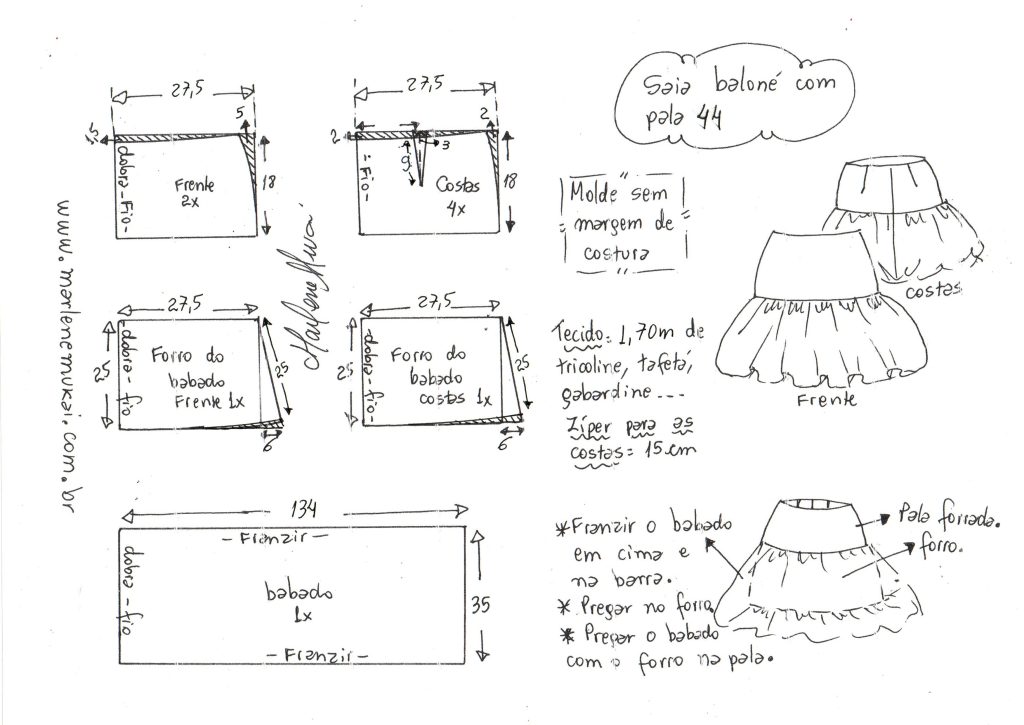 27,5
5
5
dobra-Fio-
Frente
2x
18
27,5
2
2
3
9
-Fio-
Costas
4x
18
Saia baloné com
pala 44
"Molde sem
margem de
costura
costas
Frente
Marlene Mukai
www.marlenemukai.com.br
27,5
25
-dobra-fio
Forro do
babado
Frente 1x
25
6
27,5
25
-dobra-fio-
Forro do
babado
costas 1x
25
6
Tecido: 1,70m de
tricoline, tafetá,
gabardine...
Zíper para as
costas = 15cm
134
-Franzir-
dobra-fio
babado
1x
35
-Franzir-
*Franzir o babado
em cima e
na barra.
* Pregar no forro.
* Pregar o babado
com o forro na pala.
Pala forrada.
forro.